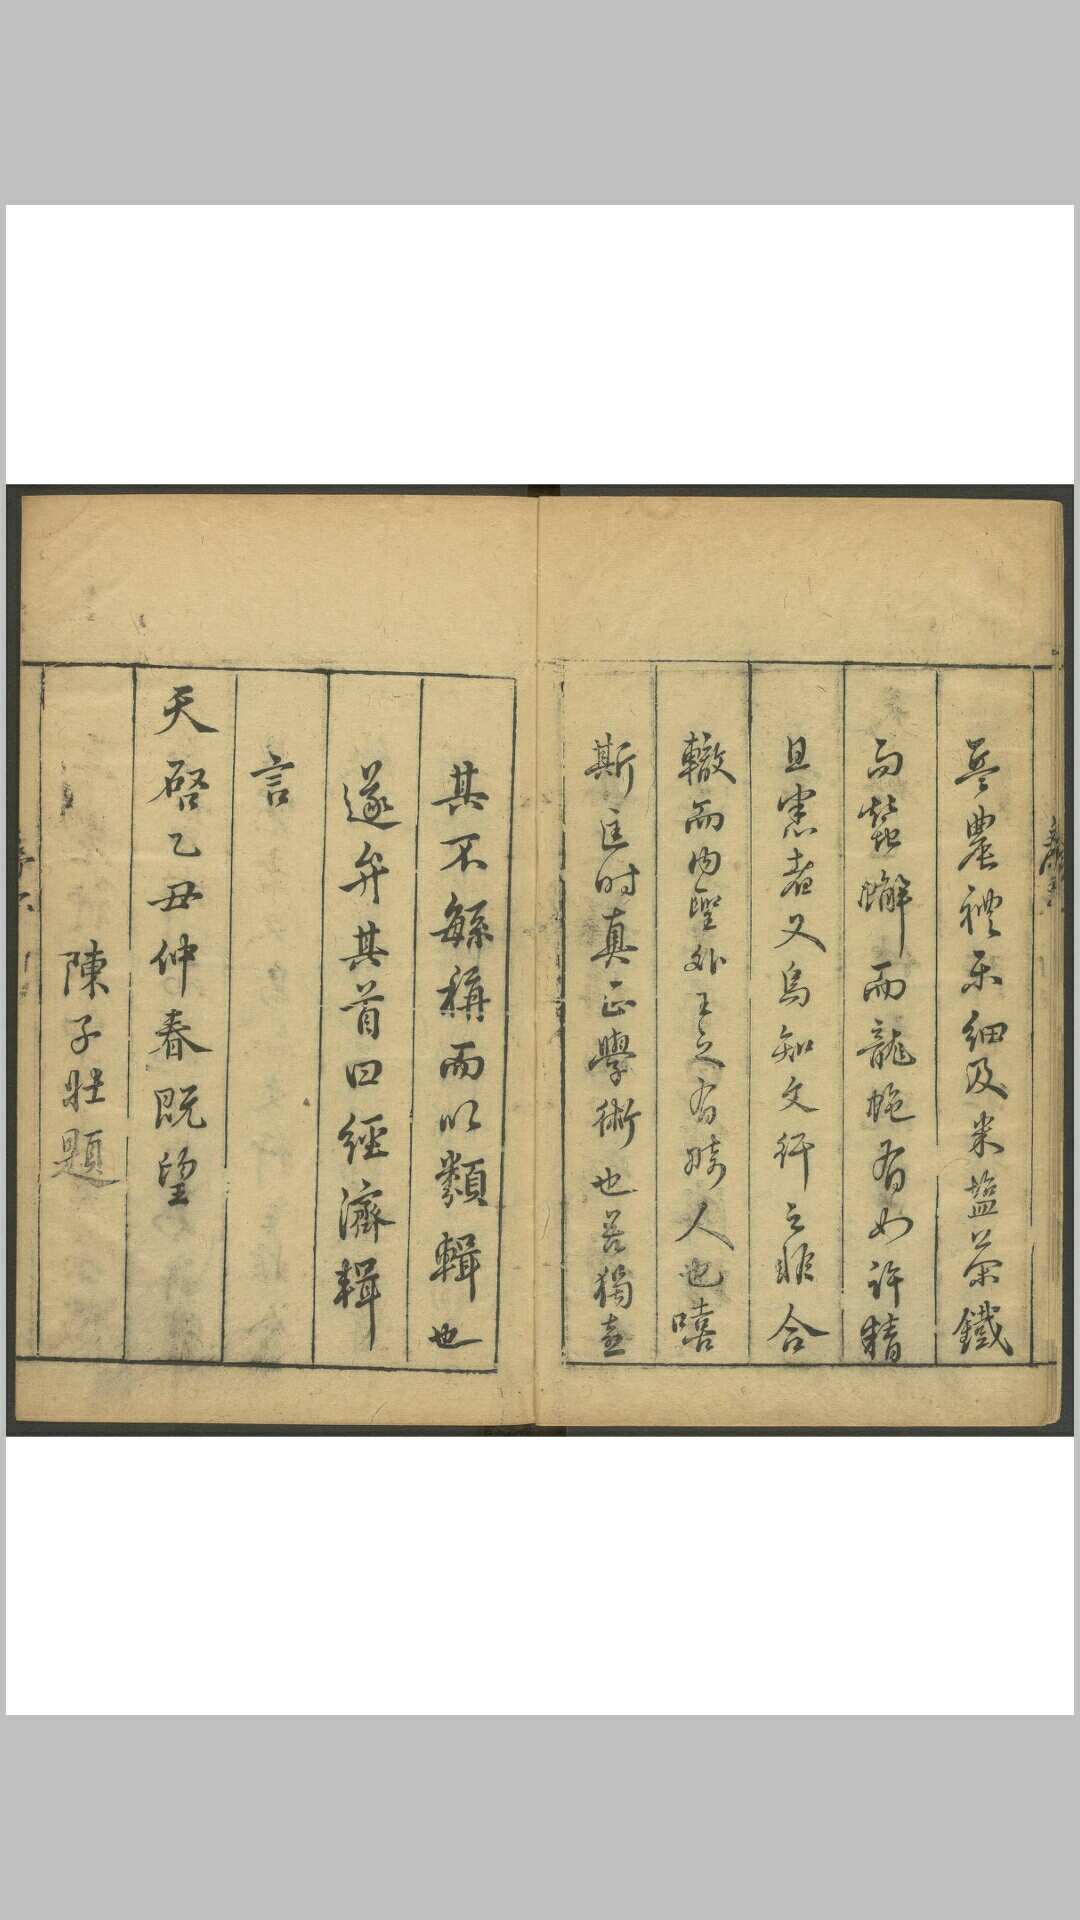 兵農禮乐細及米塩茶鐵
蠏而龍虵有如許精
且憲者又烏知文行之非合
轍而内聖外王之有畸人也嘻
斯匡时真正學術也若獨喜
其不繇稱而以類輯也
遂弁其首曰經濟輯
言
天啓乙丑仲春既望
陳子壯題